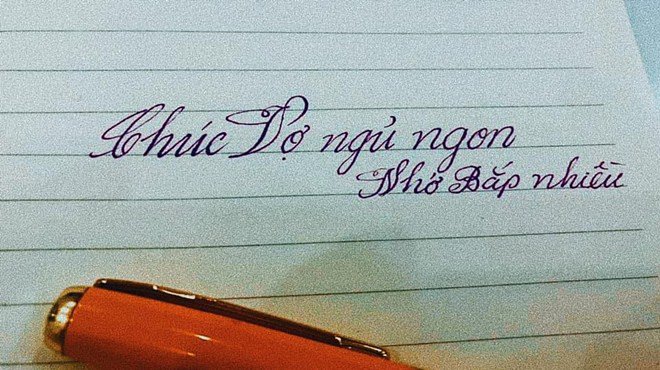 Chúc Vợ ngủ ngon
Nhớ Bắp nhiều